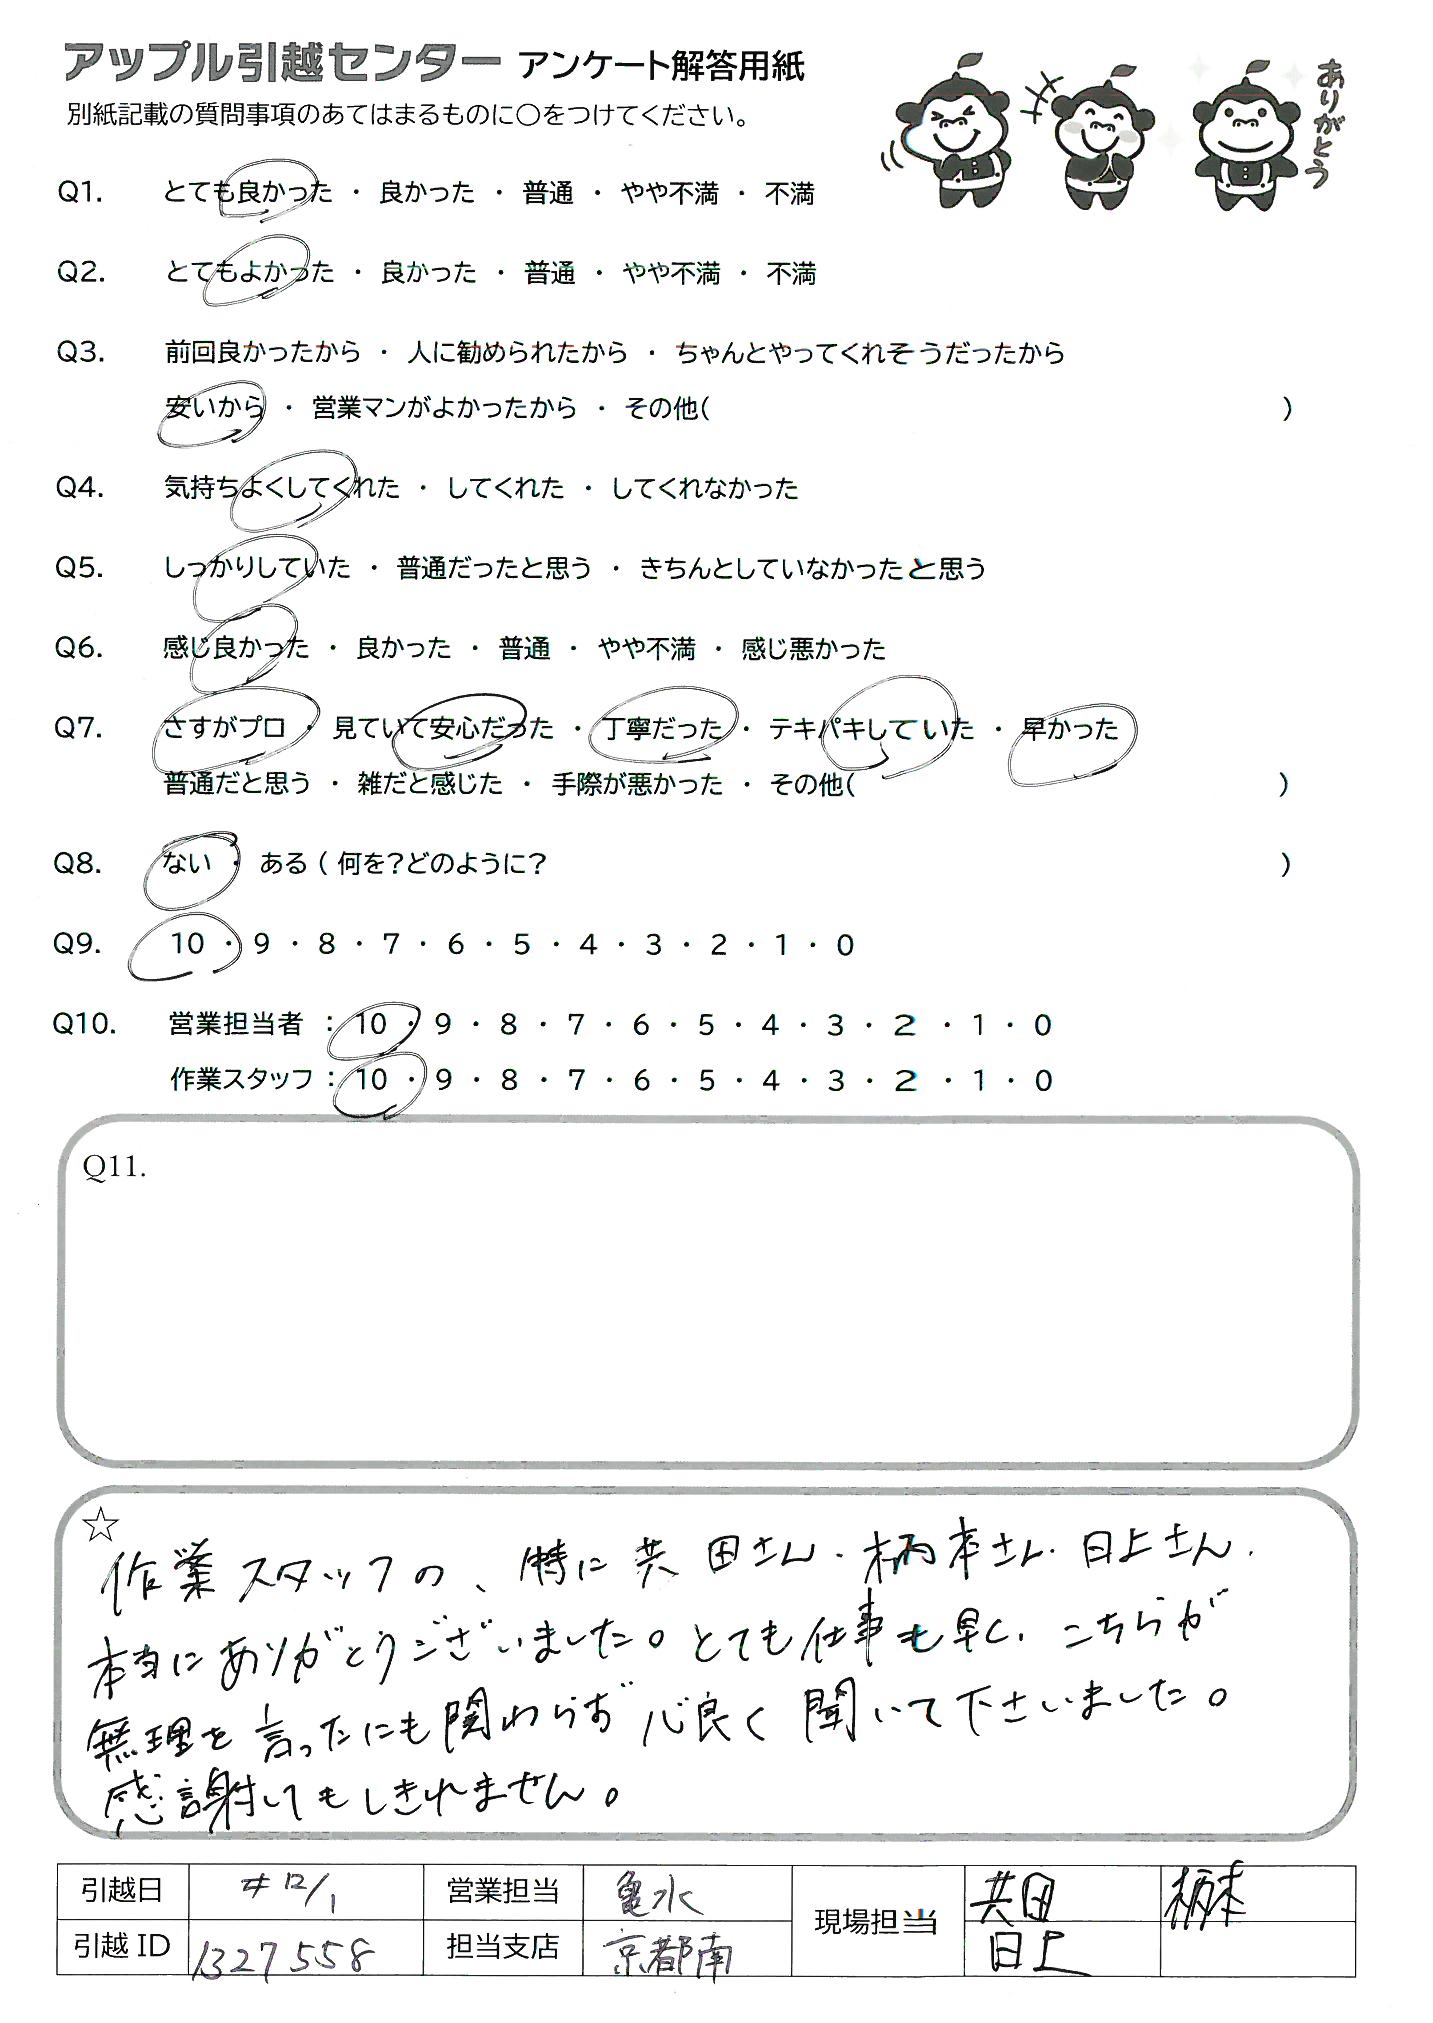 アップル引越センター アンケート解答用紙
別紙記載の質問事項のあてはまるものに○をつけてください。
ありがとう
Q1. とても良かった ・ 良かった ・ 普通 ・ やや不満 ・ 不満
Q2. とてもよかった ・ 良かった ・ 普通 ・ やや不満 ・ 不満
Q3. 前回良かったから ・ 人に勧められたから ・ ちゃんとやってくれそうだったから
安いから ・ 営業マンがよかったから ・ その他( )
Q4. 気持ちよくしてくれた ・ してくれた ・ してくれなかった
Q5. しっかりしていた ・ 普通だったと思う ・ きちんとしていなかったと思う
Q6. 感じ良かった ・ 良かった ・ 普通 ・ やや不満 ・ 感じ悪かった
Q7. さすがプロ ・ 見ていて安心だった ・ 丁寧だった ・ テキパキしていた ・ 早かった
普通だと思う ・ 雑だと感じた ・ 手際が悪かった ・ その他( )
Q8. ない ・ ある ( 何を?どのように? )
Q9. 10 ・ 9 ・ 8 ・ 7 ・ 6 ・ 5 ・ 4 ・ 3 ・ 2 ・ 1 ・ 0
Q10. 営業担当者 : 10 ・ 9 ・ 8 ・ 7 ・ 6 ・ 5 ・ 4 ・ 3 ・ 2 ・ 1 ・ 0
作業スタッフ : 10 ・ 9 ・ 8 ・ 7 ・ 6 ・ 5 ・ 4 ・ 3 ・ 2 ・ 1 ・ 0
Q11.
☆
作業スタッフの、特に共田さん・柄本さん・日上さん、
本当にありがとうございました。とても仕事も早く、こちらが
無理を言ったにも関わらず心良く聞いて下さいました。
感謝してもしきれません。
引越日 12/1 営業担当 亀水 現場担当 共田 柄本
引越ID 1327558 担当支店 京都南 日上